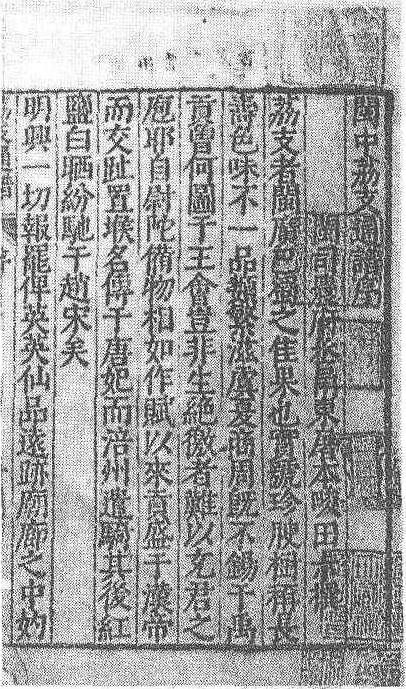 閩中荔支通譜序
閩司農府長 東屠本畯田 撰
荔支者閩廣巴蜀之佳果也實號珍腴樹稱長
壽色味不一品類繁滋虞夏商周旣不鋤于禹
貢曾何圖于王會豈非生絶徼者難以充君之
庖耶自尉陀備物相如作賦以來貢盛于漢帝
而交趾置堠名傳于唐妃而涪州遣騎其後紅
鹽白晒紛馳于趙宋矣
明興一切報罷俾英英仙品遠跡廟廊之中妁